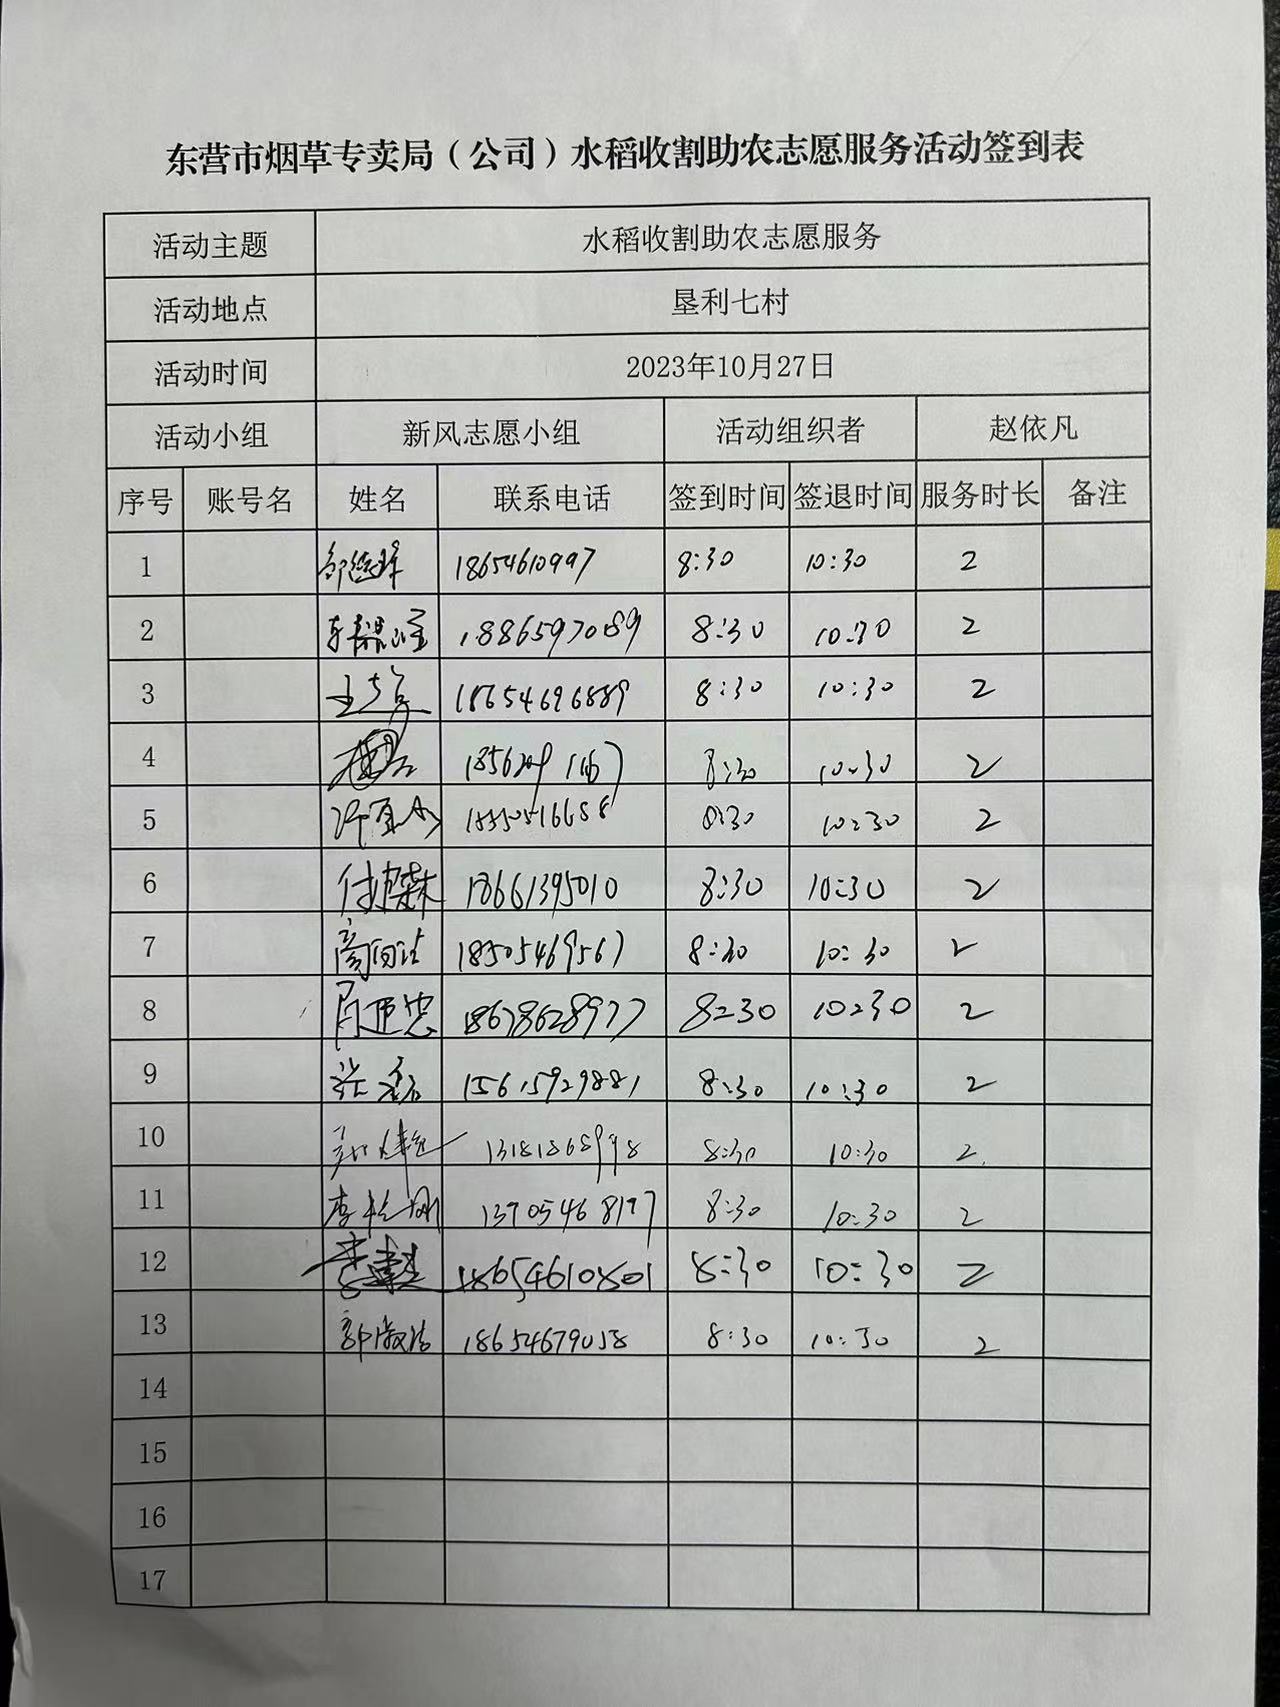 东营市烟草专卖局（公司）水稻收割助农志愿服务活动签到表
活动主题 水稻收割助农志愿服务
活动地点 垦利七村
活动时间 2023年10月27日
活动小组 新风志愿小组 活动组织者 赵依凡
序号 账号名 姓名 联系电话 签到时间 签退时间 服务时长 备注
1 18654610997 8:30 10:30 2
2 18865970089 8:30 10:30 2
3 18654696889 8:30 10:30 2
4 8:30 10:30 2
5 8:30 10:30 2
6 付栋森 18661395010 8:30 10:30 2
7 18505469567 8:30 10:30 2
8 肖亚忠 18678628977 8:30 10:30 2
9 张磊 15615929881 8:30 10:30 2
10 13181868998 8:30 10:30 2
11 13905468197 8:30 10:30 2
12 18654610801 8:30 10:30 2
13 18654679058 8:30 10:30 2
14
15
16
17